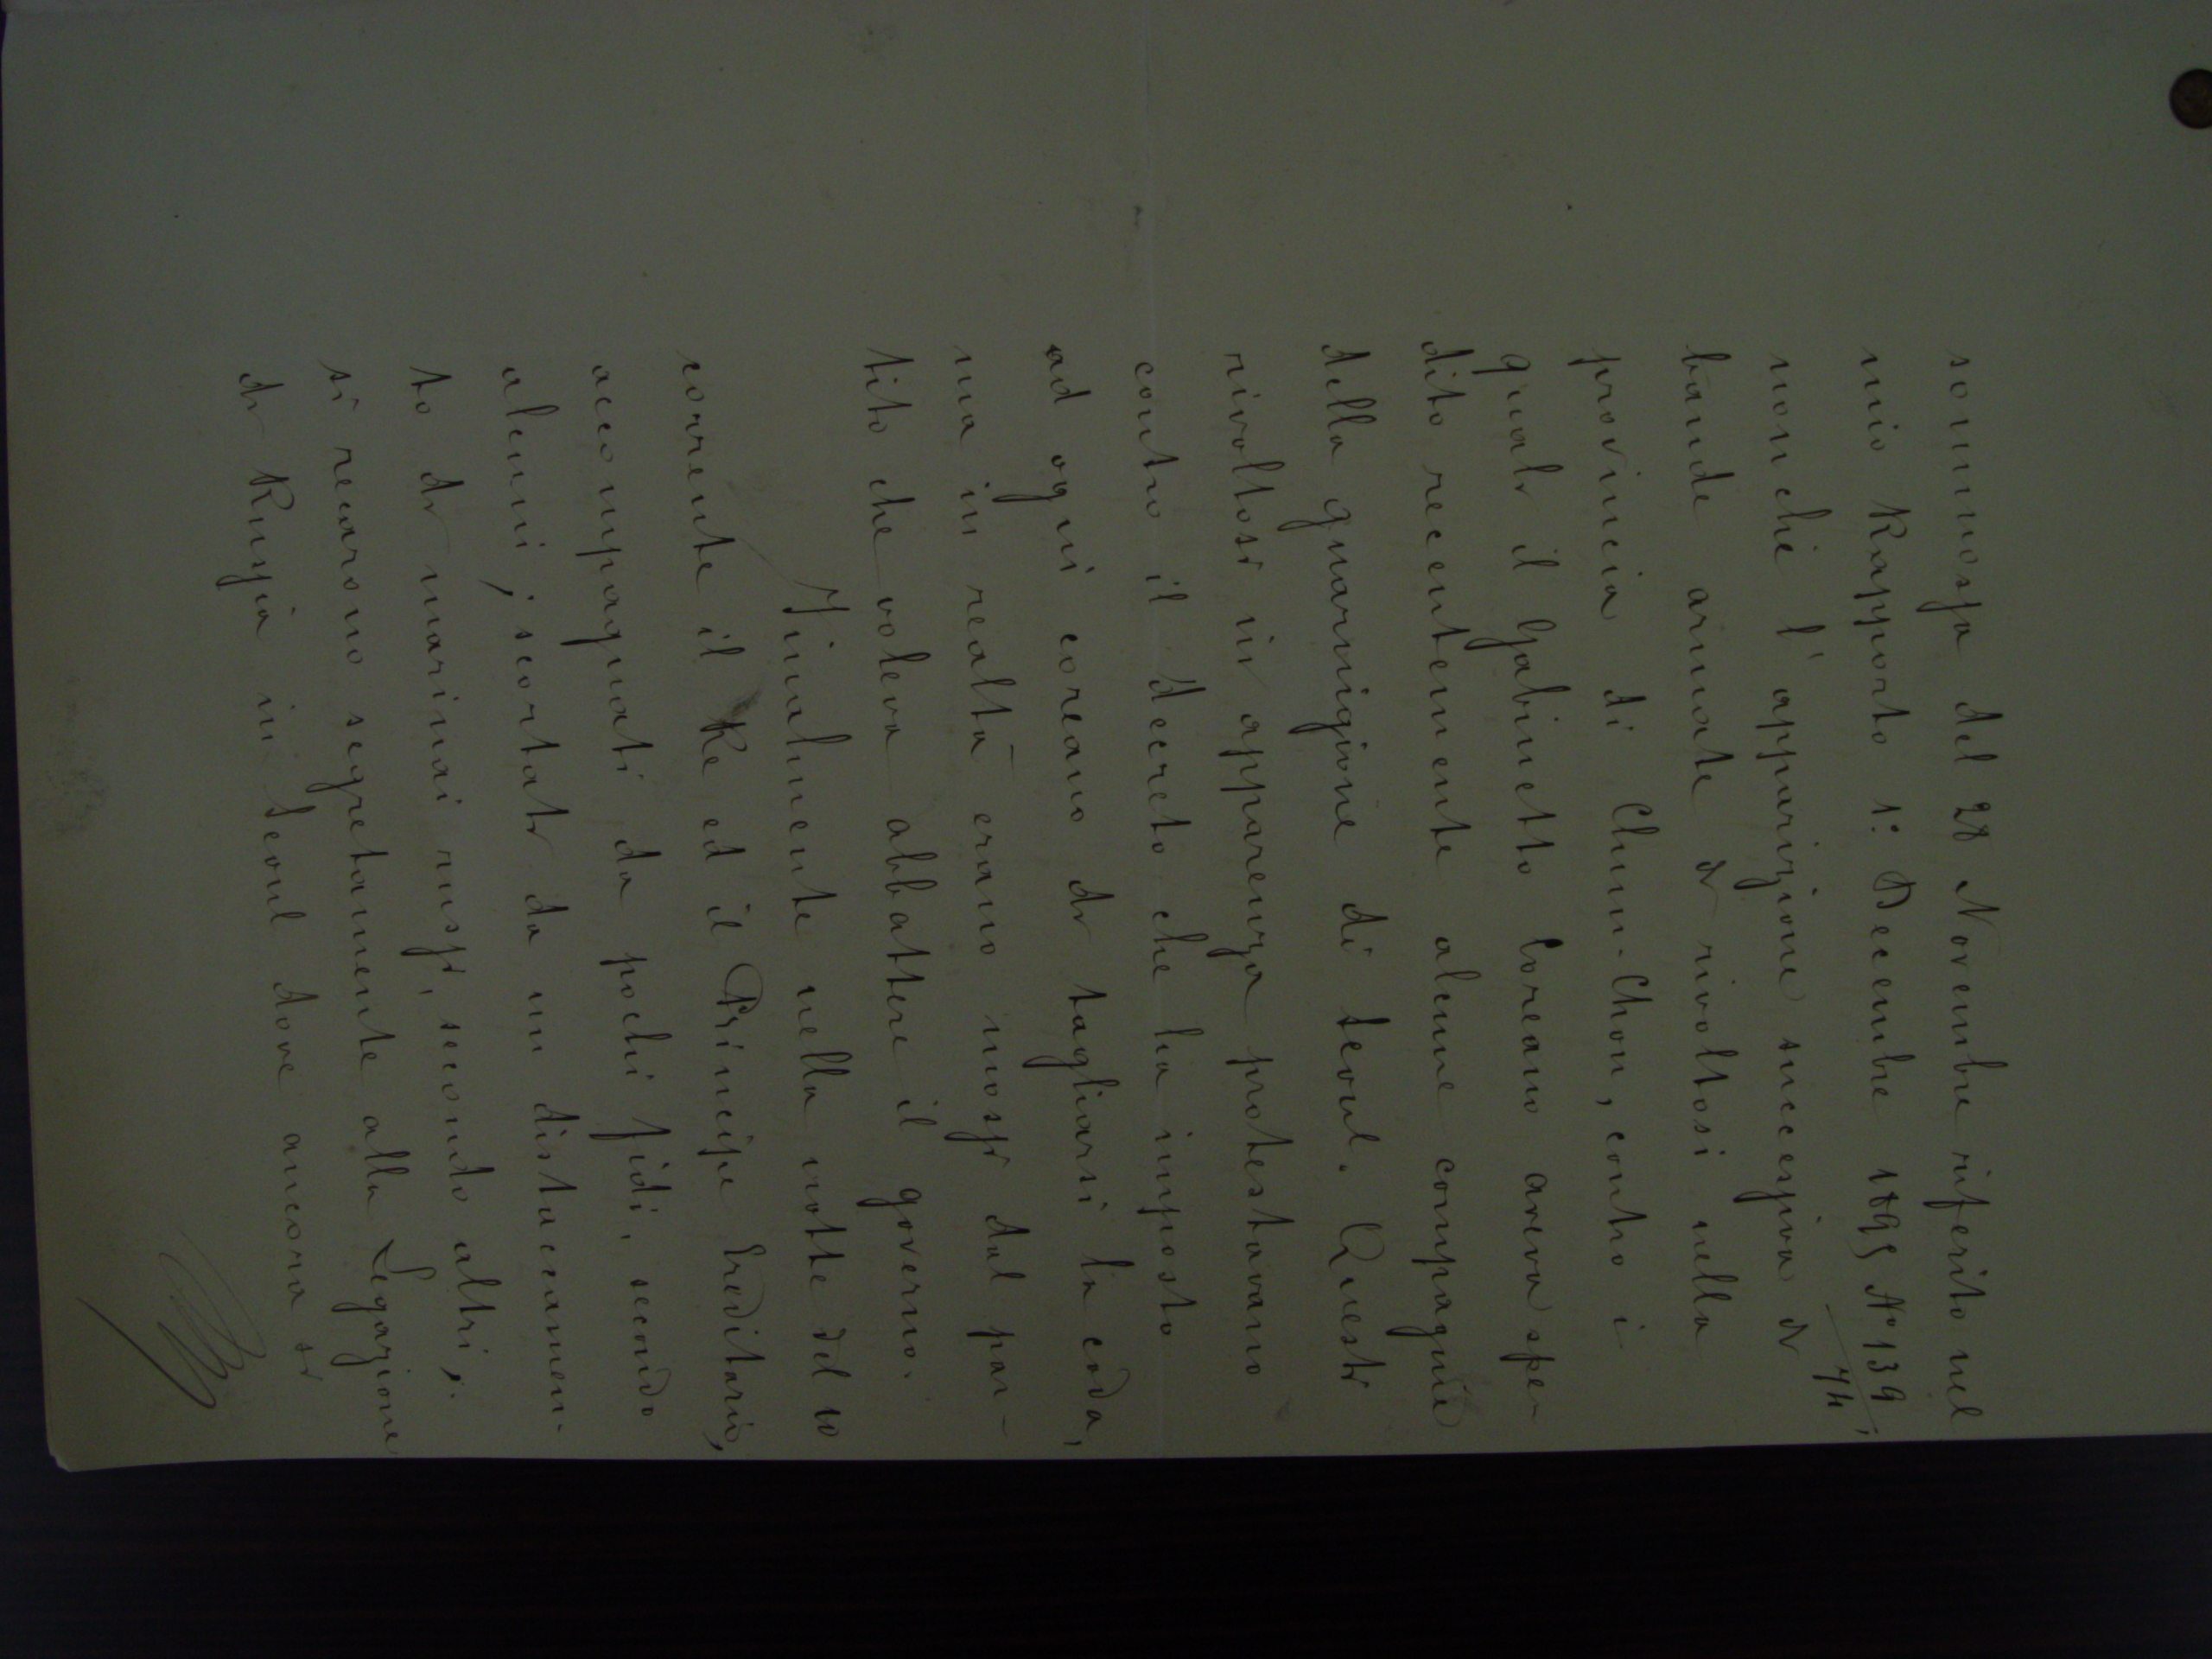 sommossa del 28 Novembre riferito nel
mio Rapporto 1º Decembre 1895 Nº 139/74;
nonchè l'apparizione successiva di
bande armate di rivoltosi nella
provincia di Chun-Chon, contro i
quali il Gabinetto Coreano aveva spe-
dito recentemente alcune compagnie
della guarnigione di Seoul. Questi
rivoltosi in apparenza protestavano
contro il decreto che ha imposto
ad ogni coreano di tagliarsi la coda,
ma in realtà erano mossi dal par-
tito che voleva abbattere il governo.
Finalmente nella notte del 10
corrente il Re ed il Principe Ereditario,
accompagnati da pochi fidi, secondo
alcuni; scortati da un distaccamen-
to di marinai russi, secondo altri;
si recarono segretamente alla Legazione
di Russia in Seoul dove ancora si